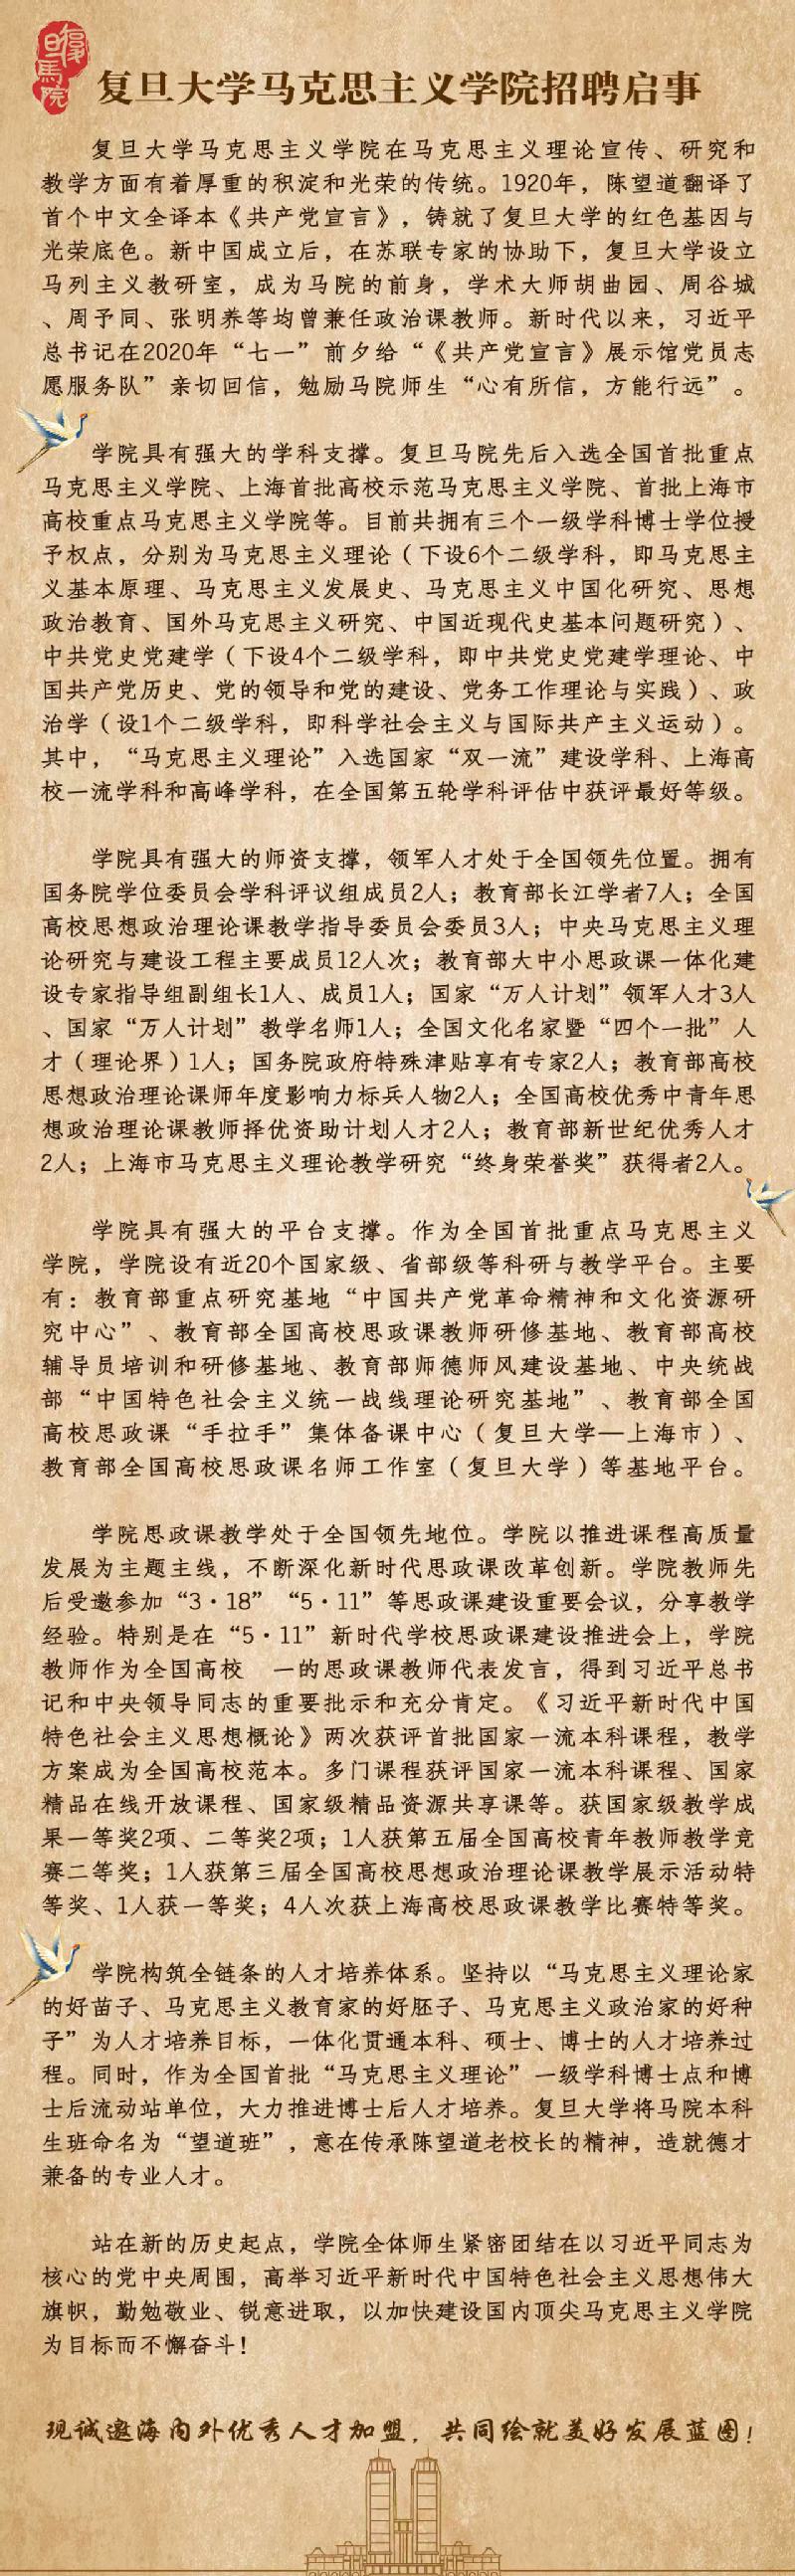 復旦馬院
复旦大学马克思主义学院招聘启事
复旦大学马克思主义学院在马克思主义理论宣传、研究和
教学方面有着厚重的积淀和光荣的传统。1920年，陈望道翻译了
首个中文全译本《共产党宣言》，铸就了复旦大学的红色基因与
光荣底色。新中国成立后，在苏联专家的协助下，复旦大学设立
马列主义教研室，成为马院的前身，学术大师胡曲园、周谷城
、周予同、张明养等均曾兼任政治课教师。新时代以来，习近平
总书记在2020年“七一”前夕给“《共产党宣言》展示馆党员志
愿服务队”亲切回信，勉励马院师生“心有所信，方能行远”。
学院具有强大的学科支撑。复旦马院先后入选全国首批重点
马克思主义学院、上海首批高校示范马克思主义学院、首批上海市
高校重点马克思主义学院等。目前共拥有三个一级学科博士学位授
予权点，分别为马克思主义理论（下设6个二级学科，即马克思主
义基本原理、马克思主义发展史、马克思主义中国化研究、思想
政治教育、国外马克思主义研究、中国近现代史基本问题研究）、
中共党史党建学（下设4个二级学科，即中共党史党建学理论、中
国共产党历史、党的领导和党的建设、党务工作理论与实践）、政
治学（设1个二级学科，即科学社会主义与国际共产主义运动）。
其中，“马克思主义理论”入选国家“双一流”建设学科、上海高
校一流学科和高峰学科，在全国第五轮学科评估中获评最好等级。
学院具有强大的师资支撑，领军人才处于全国领先位置。拥有
国务院学位委员会学科评议组成员2人；教育部长江学者7人；全国
高校思想政治理论课教学指导委员会委员3人；中央马克思主义理
论研究与建设工程主要成员12人次；教育部大中小思政课一体化建
设专家指导组副组长1人、成员1人；国家“万人计划”领军人才3人
、国家“万人计划”教学名师1人；全国文化名家暨“四个一批”人
才（理论界）1人；国务院政府特殊津贴享有专家2人；教育部高校
思想政治理论课师年度影响力标兵人物2人；全国高校优秀中青年思
想政治理论课教师择优资助计划人才2人；教育部新世纪优秀人才
2人；上海市马克思主义理论教学研究“终身荣誉奖”获得者2人。
学院具有强大的平台支撑。作为全国首批重点马克思主义
学院，学院设有近20个国家级、省部级等科研与教学平台。主要
有：教育部重点研究基地“中国共产党革命精神和文化资源研
究中心”、教育部全国高校思政课教师研修基地、教育部高校
辅导员培训和研修基地、教育部师德师风建设基地、中央统战
部“中国特色社会主义统一战线理论研究基地”、教育部全国
高校思政课“手拉手”集体备课中心（复旦大学—上海市）、
教育部全国高校思政课名师工作室（复旦大学）等基地平台。
学院思政课教学处于全国领先地位。学院以推进课程高质量
发展为主题主线，不断深化新时代思政课改革创新。学院教师先
后受邀参加“3·18”“5·11”等思政课建设重要会议，分享教学
经验。特别是在“5·11”新时代学校思政课建设推进会上，学院
教师作为全国高校 一的思政课教师代表发言，得到习近平总书
记和中央领导同志的重要批示和充分肯定。《习近平新时代中国
特色社会主义思想概论》两次获评首批国家一流本科课程，教学
方案成为全国高校范本。多门课程获评国家一流本科课程、国家
精品在线开放课程、国家级精品资源共享课等。获国家级教学成
果一等奖2项、二等奖2项；1人获第五届全国高校青年教师教学竞
赛二等奖；1人获第三届全国高校思想政治理论课教学展示活动特
等奖、1人获一等奖；4人次获上海高校思政课教学比赛特等奖。
学院构筑全链条的人才培养体系。坚持以“马克思主义理论家
的好苗子、马克思主义教育家的好胚子、马克思主义政治家的好种
子”为人才培养目标，一体化贯通本科、硕士、博士的人才培养过
程。同时，作为全国首批“马克思主义理论”一级学科博士点和博
士后流动站单位，大力推进博士后人才培养。复旦大学将马院本科
生班命名为“望道班”，意在传承陈望道老校长的精神，造就德才
兼备的专业人才。
站在新的历史起点，学院全体师生紧密团结在以习近平同志为
核心的党中央周围，高举习近平新时代中国特色社会主义思想伟大
旗帜，勤勉敬业、锐意进取，以加快建设国内顶尖马克思主义学院
为目标而不懈奋斗！
现诚邀海内外优秀人才加盟，共同绘就美好发展蓝图！